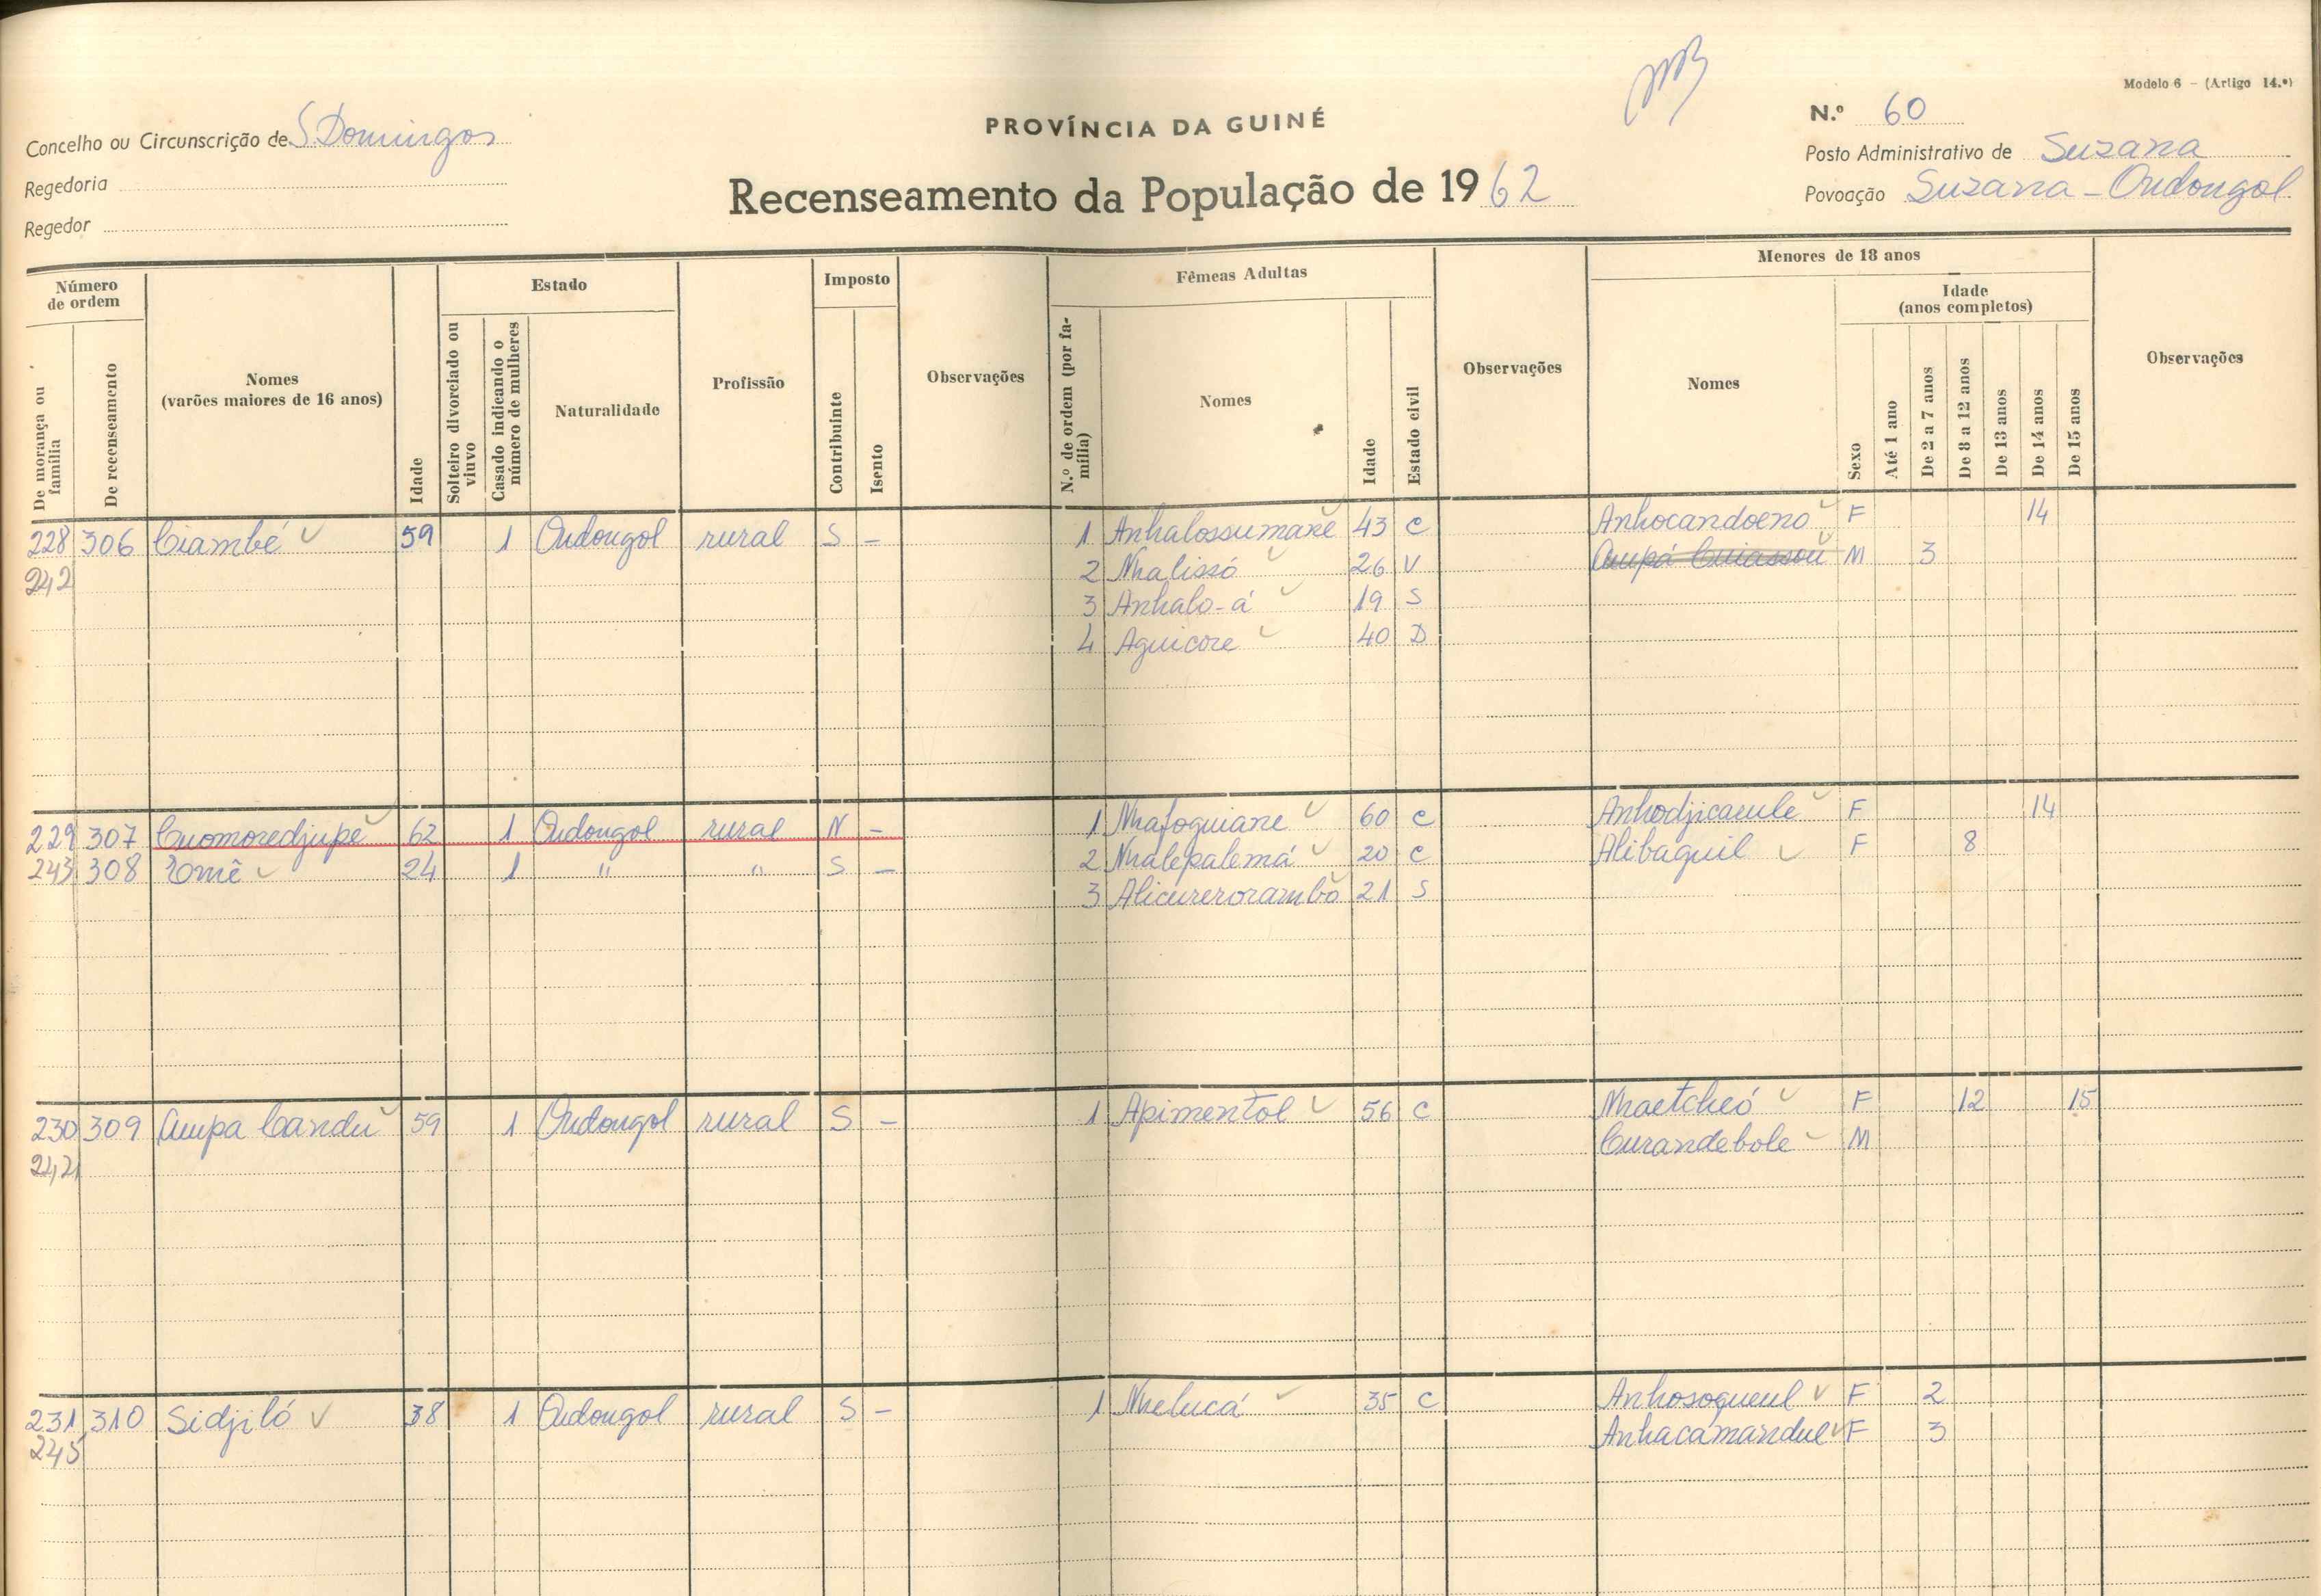 Modelo 6 – (Artigo 14.º)
PROVÍNCIA DA GUINÉ
N.º 60
Concelho ou Circunscrição de S. Domingos
Posto Administrativo de Suzana
Regedoria
Recenseamento da População de 1962
Povoação Suzana - Ondongol
Regedor
Número de ordem
De morança ou família
De recenseamento
Nomes (varões maiores de 16 anos)
Idade
Estado
Solteiro divorciado ou viuvo
Casado indicando o número de mulheres
Naturalidade
Profissão
Imposto
Contribuinte
Isento
Observações
Fêmeas Adultas
N.º de ordem (por família)
Nomes
Idade
Estado civil
Observações
Menores de 18 anos
Nomes
Sexo
Idade (anos completos)
Até 1 ano
De 2 a 7 anos
De 8 a 12 anos
De 13 anos
De 14 anos
De 15 anos
Observações
228 306 Ciambé 59 1 Ondongol rural S – 1 Anhalossumane 43 C Anhocandoeno F 14
242 2 Nhalissó 26 V Aupá M 3
3 Anhalo-á 19 S
4 Aguicore 40 D
229 307 Cuomoredjupe 62 1 Ondongol rural N – 1 Nhafoguiane 60 C Anhodjicaeule F 14
243 308 Tomê 24 1 " " S – 2 Nhalepalemá 20 C Alibaguil F 8
3 Alicurerorambo 21 S
230 309 Aupa Candu 59 1 Ondongol rural S – 1 Apimentol 56 C Nhaetcheó F 12 15
Curandebole M
231 310 Sidjiló 38 1 Ondongol rural S – 1 Nhelucá 35 C Anhosogueul F 2
245 Anhacamandul F 3